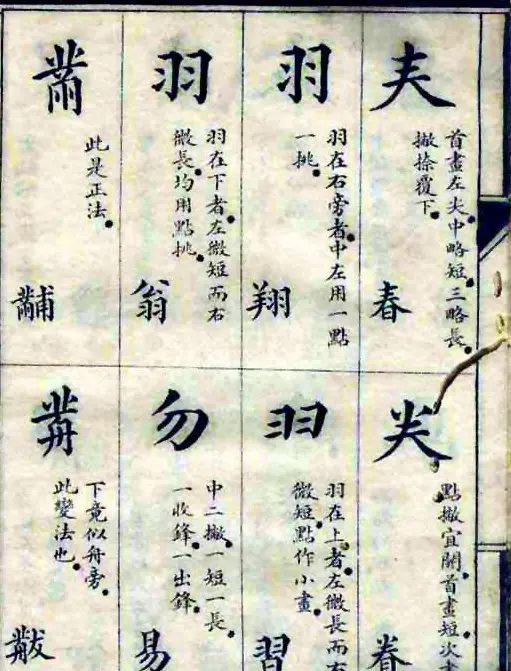 𡗗
首畫左尖中略短三略長
撇捺覆下
春
羽
羽在右旁者中左用一點
一挑
翔
羽
羽在下者左微短而右
微長均用點挑
翁
黹
此是正法
黼
龹
點撇宜開首畫短次
眷
羽
羽在上者左微長而右
微短點作小畫
習
勿
中二撇一短一長
一收鋒一出鋒
易
下竟似舟旁
此變法也
黻